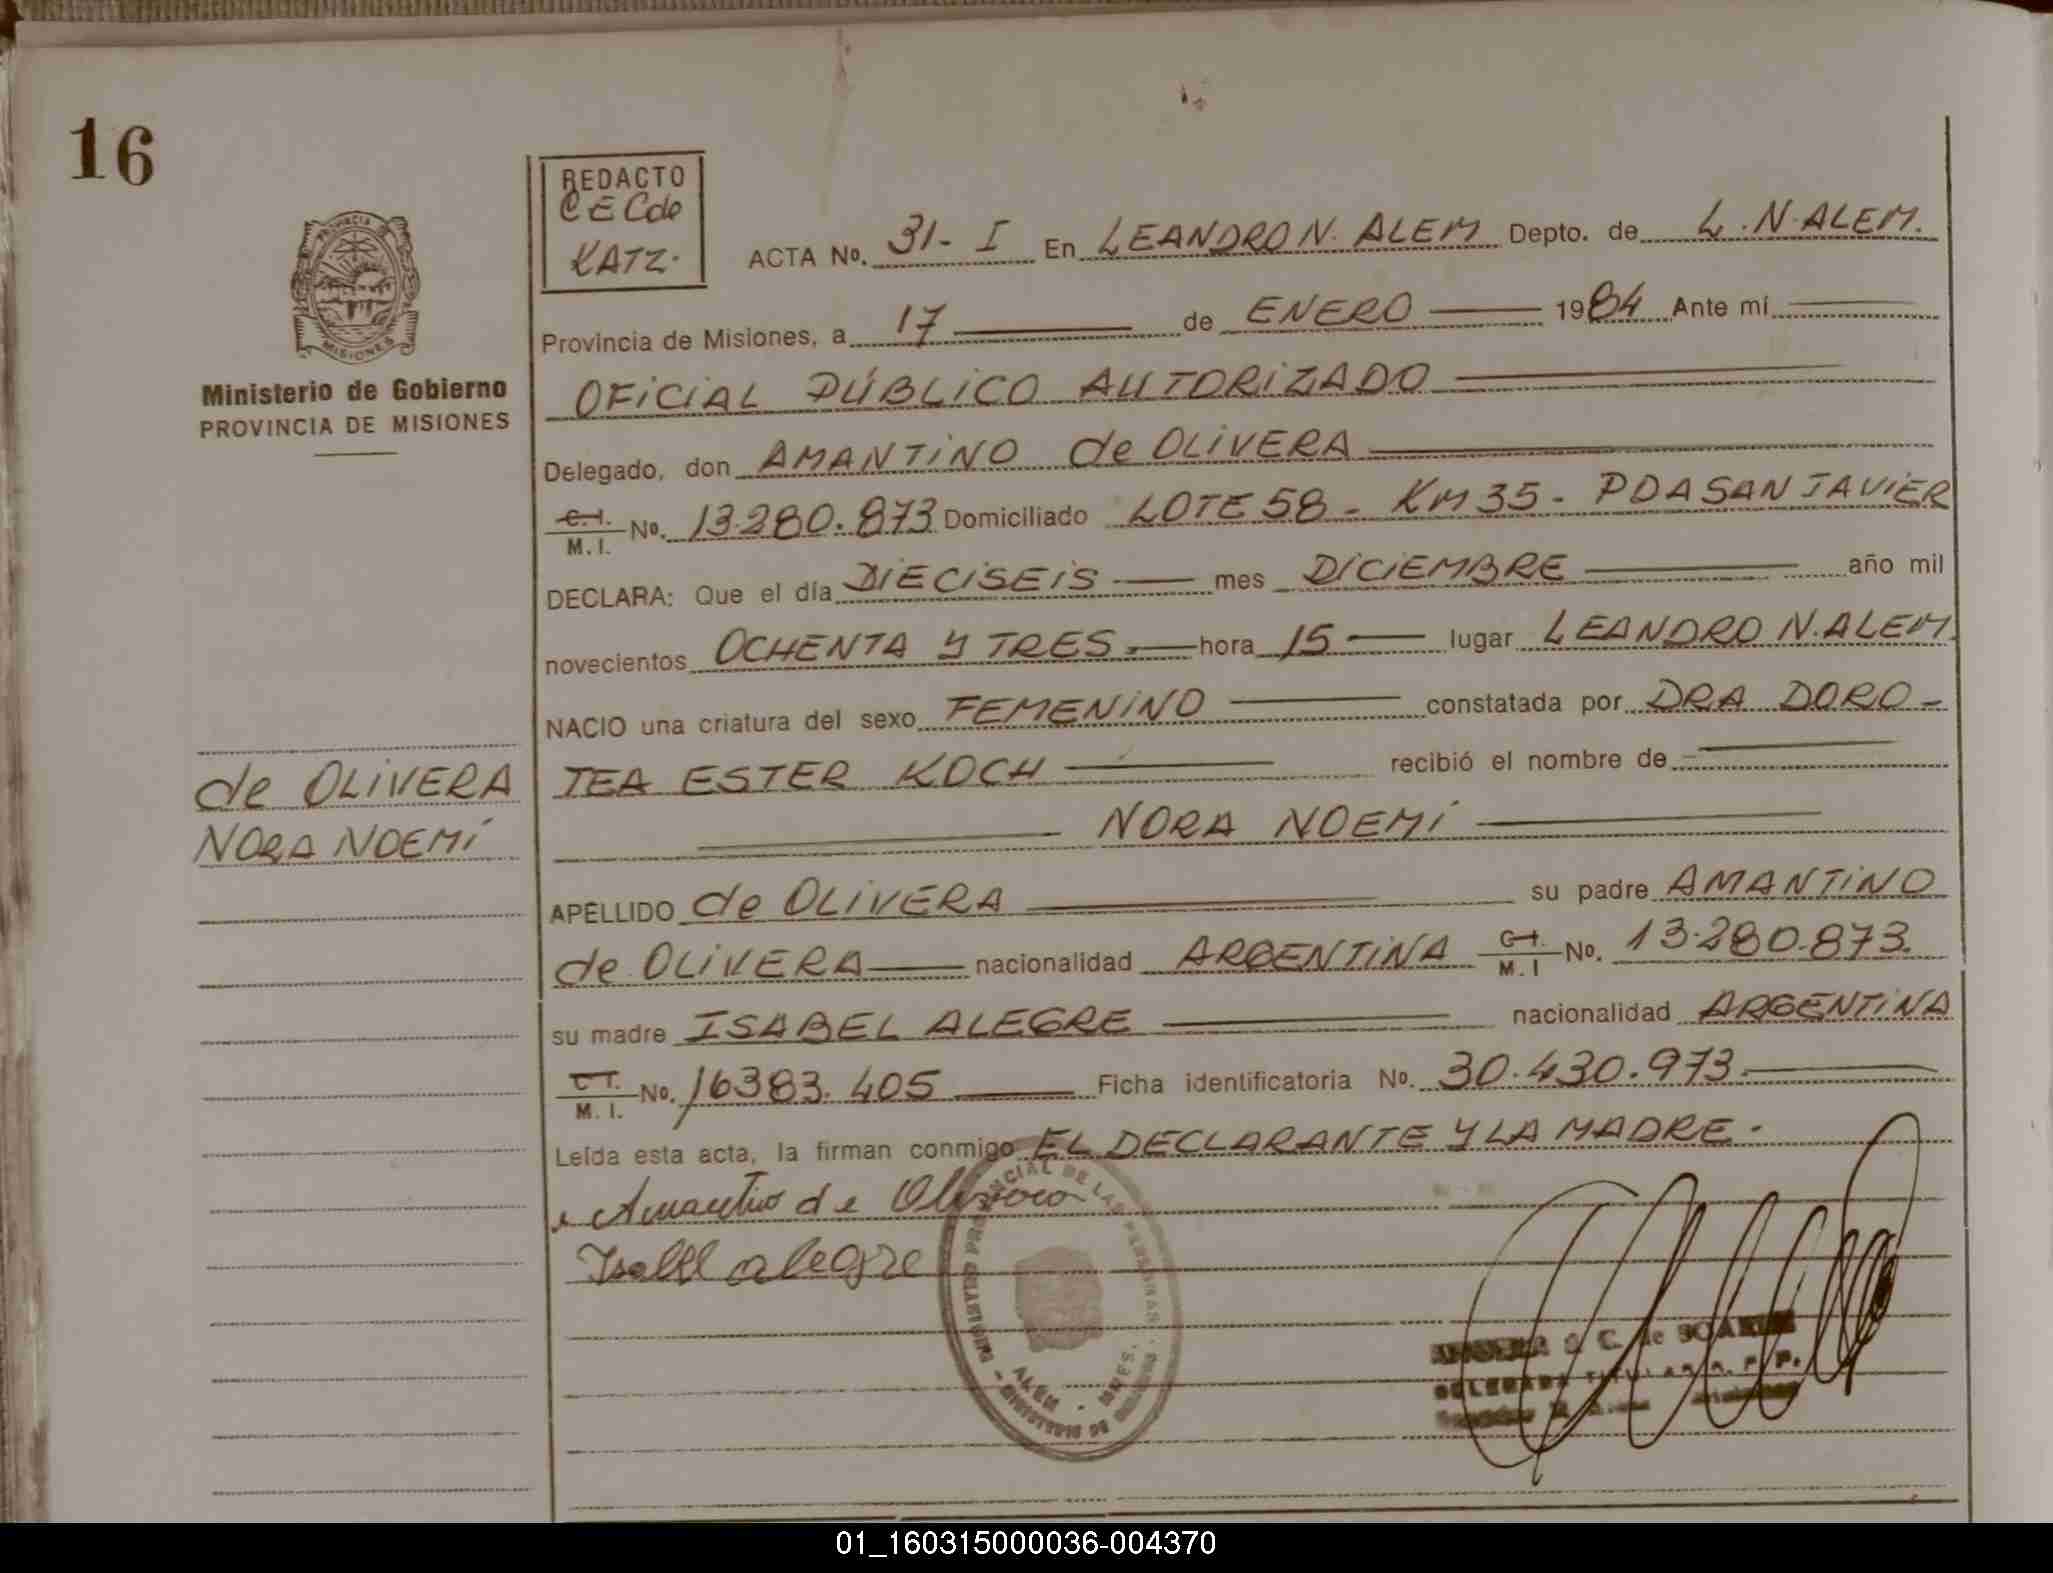 16
REDACTO
C E C de
KATZ.
PROVINCIA DE
MISIONES
Ministerio de Gobierno
PROVINCIA DE MISIONES
ACTA No. 31- I En LEANDRO N. ALEM Depto. de L. N. ALEM.
Provincia de Misiones, a 17 de ENERO 1984 Ante mí
OFICIAL PÚBLICO AUTORIZADO
Delegado, don AMANTINO de OLIVERA
C.I. M.I. No. 13.280.873 Domiciliado LOTE 58 - KM 35 - PDA SAN JAVIER
DECLARA: Que el día DIECISEIS mes DICIEMBRE año mil
novecientos OCHENTA Y TRES.- hora 15 lugar LEANDRO N. ALEM.
NACIO una criatura del sexo FEMENINO constatada por DRA DORO-
TEA ESTER KOCH recibió el nombre de
NORA NOEMÍ
de OLIVERA
NORA NOEMÍ
APELLIDO de OLIVERA su padre AMANTINO
de OLIVERA nacionalidad ARGENTINA C.I. M.I No. 13.280.873.
su madre ISABEL ALEGRE nacionalidad ARGENTINA
C.I. M.I. No. 16383.405 Ficha identificatoria No. 30.430.973.
Leída esta acta, la firman conmigo EL DECLARANTE Y LA MADRE.
Amantino de Olivera
Isabel alegre
PROVINCIAL DE LAS PERSONAS
ALEM - MNES.
C. de SOAREZ
01_160315000036-004370